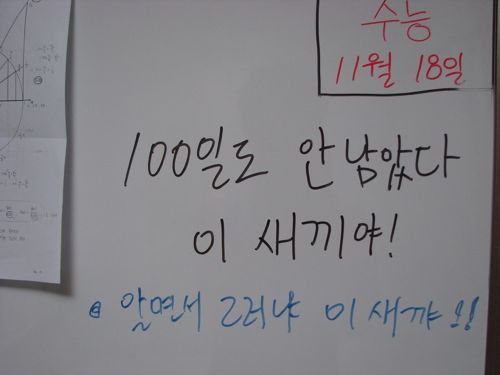 수능
11월 18일
100일도 안 남았다
이 새끼야!
알면서 그러냐 이 새꺄!!